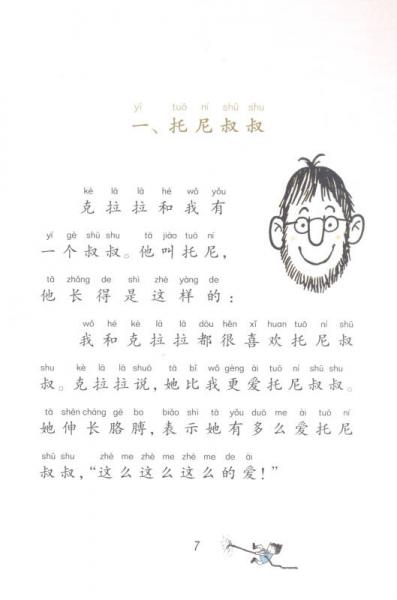 yī tuō ní shū shu
一、托尼叔叔
kè lā lā hé wǒ yǒu
克拉拉和我有
yí gè shū shu tā jiào tuō ní
一个叔叔。他叫托尼，
tā zhǎng de shì zhè yàng de
他长得是这样的：
wǒ hé kè lā lā dōu hěn xǐ huan tuō ní shū
我和克拉拉都很喜欢托尼叔
shu kè lā lā shuō tā bǐ wǒ gèng ài tuō ní shū shu
叔。克拉拉说，她比我更爱托尼叔叔。
tā shēn cháng gē bo biǎo shì tā yǒu duō me ài tuō ní
她伸长胳膊，表示她有多么爱托尼
shū shu zhè me zhè me zhè me de ài
叔叔，“这么这么这么的爱！”
7